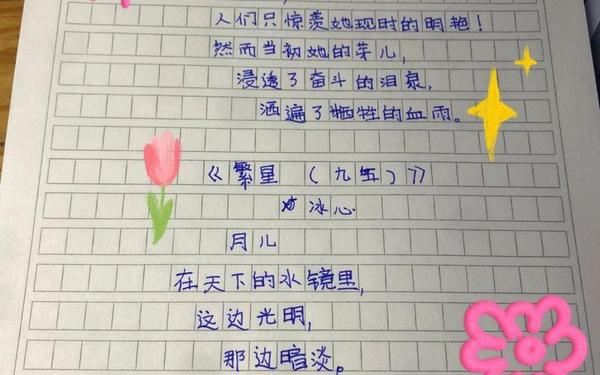 人们只惊羡她现时的明艳！
然而当初她的芽儿，
浸透了奋斗的泪泉，
洒遍了牺牲的血雨。
《繁星（九五）》
冰心
月儿
在天下的水镜里，
这边光明，
那边暗淡。